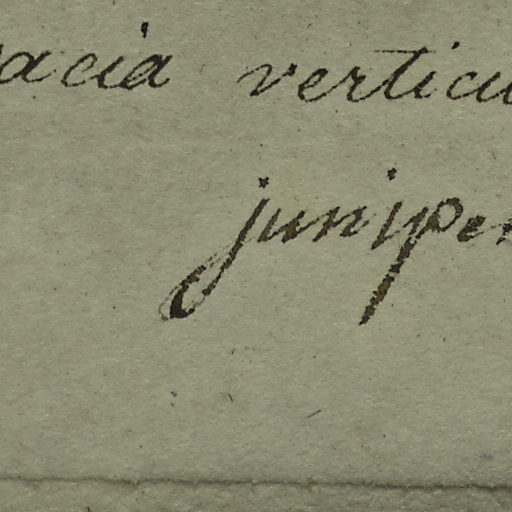 acacia verticu
juniper